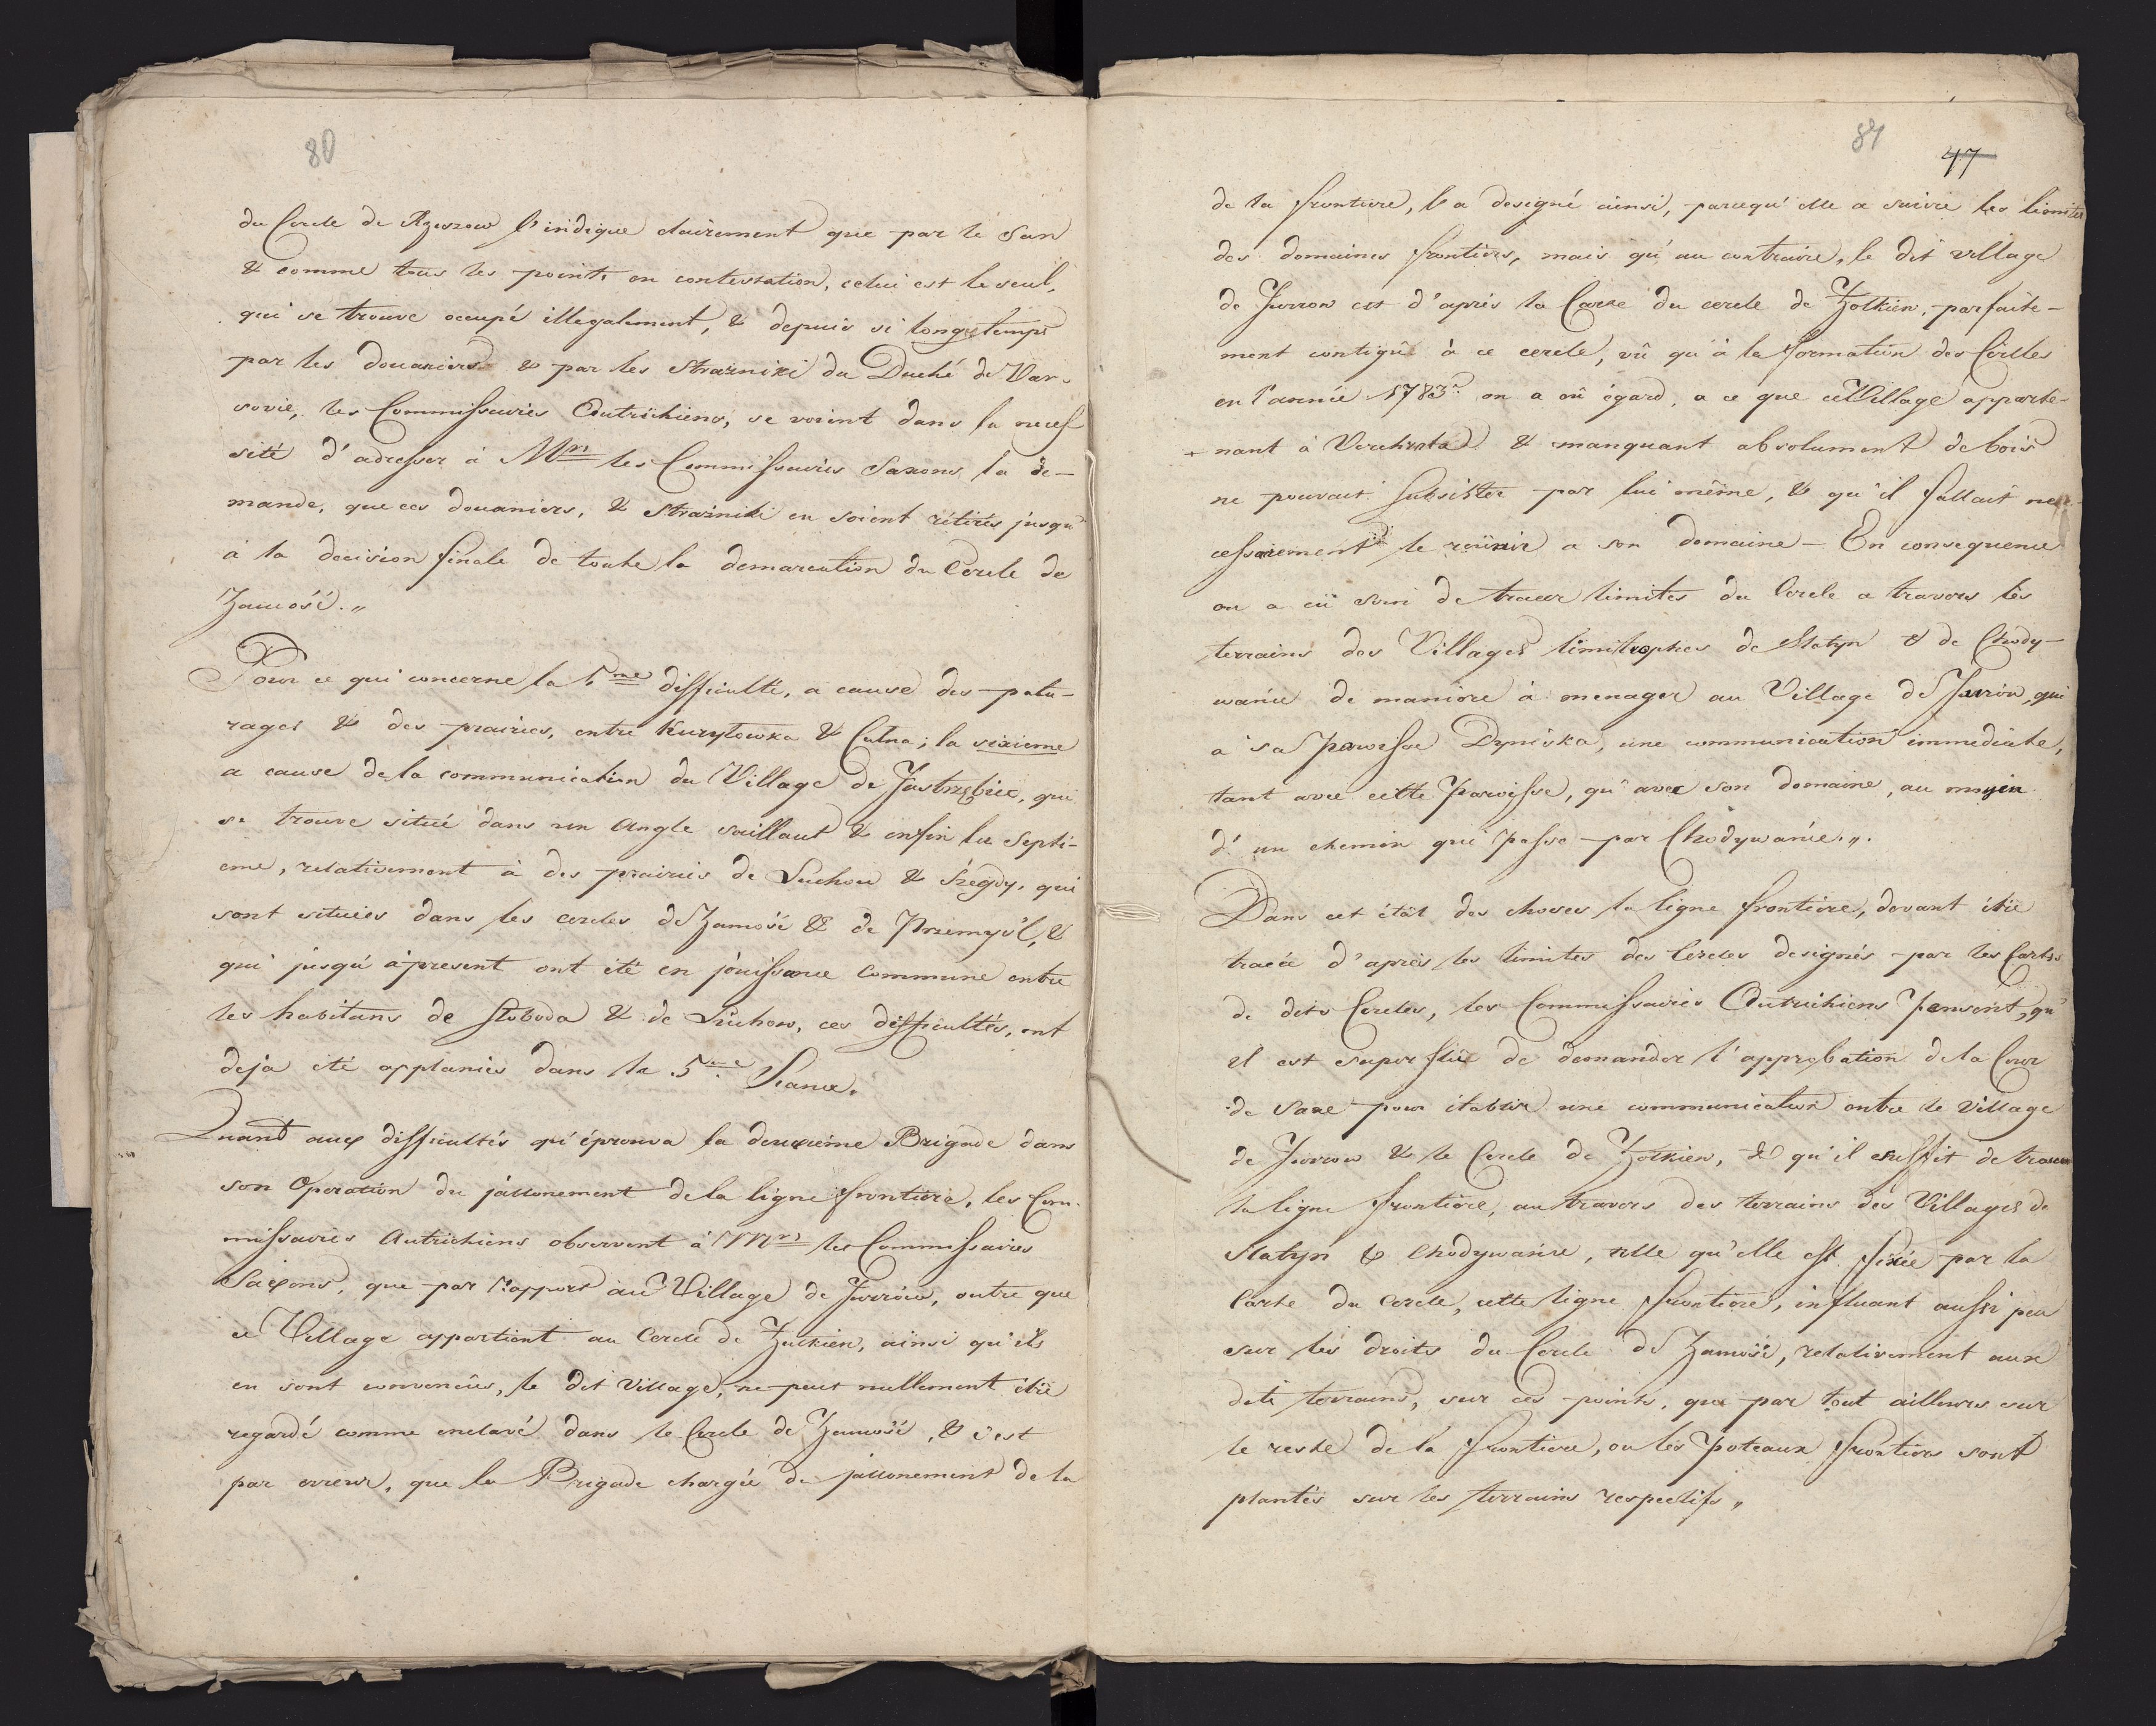 80
du Cercle de Rzeszow l'indique clairement que par le San
& comme tous les points en contestation, celui est le seul,
qui se trouve occupé illegalement, & depuis si longtemps
par les douaniers & par les Strazniki du Duché de Var-
sovie, les Commissaires Autrichiens, se voient dans la neces-
sité d'adresser à Mrs les Commissaires Saxons, la de-
mande, que ces douaniers, & Strazniki en soient rétirés jusqu'
à la decision finale de toute la demarcation du Cercle de
Zamość.„
Pour ce qui concerne la 5me difficulté, a cause des patu-
rages & des prairies, entre Kuryłowka & Culna; la sixieme
a cause de la communication du Village de Jastrzębiec, qui
se trouve situé dans un Angle saillant & enfin la septi-
eme, relativement à des prairies de Luchow & Szegdy, qui
sont situées dans les cercles de Zamość & de Przemysl, &
qui jusqu'àpresent ont été en jouissance commune entre
les habitans de Sloboda & de Luchow, ces difficultés, ont
deja été applanies dans la 5me Séance.
Quant aux difficultés qu'éprouva la deuxième Brigade dans
son Operation du jallonement de la ligne frontière, les Com-
missaires Autrichiens observent à Mrs les Commissaires
Saxons, que par rapport au Village de Jurrów, outre que
ce Village appartient au Cercle de Zulkiew, ainsi qu'ils
en sont convenûs, le dit Village, ne peut nullement être
regardé comme enclavé dans le Cercle de Zamość, & c'est
par erreur, que la Brigade chargée du jallonement de la
81
47
de la frontiere, l'a designé ainsi, parcequ'elle a suivie les limites
des domaines frontiers, mais qu'au contraire, le dit village
de Jurrow est d'après la Carte du cercle de Zolkiew, parfaite-
ment contigû à ce cercle, vû qu'à la formation des Cercles
en l'année 1783 on a eû égard, a ce que ce Village apparte-
+ nant à Verchrata & manquant absolument de bois
ne pouvait subsister par lui même, & qu'il fallait ne-
cessairement le reünir a son domaine - En consequence
on a eû soin de tracer limites du Cercle a travers les
terrains des Villages limitrophes de Slatyn & de Chody-
wańce de maniere à menager au Village de Jurrów, qui
a sa paroisse Dyniska, une communication immediate,
tant avec cette Paroisse, qu'avec son domaine, au moyen
d'un chemin qui passe par Chodywańce.„.
Dans cet état des choses la ligne frontiere, devant être
tracée d'après les limites des Cercles designés par les Cartes
de dits Cercles, les Commissaires Autrichiens pensent, qu'
il est superflu de demander l'approbation de la Cour
de Saxe pour établir une communication entre le Village
de Jurrow & le Cercle de Zolkiew, & qu'il suffit de tracer
la ligne frontiere, au travers des terrains des Villages de
Slatyn & Chodywańce, telle qu'elle est fixée par la
Carte du Cercle, cette ligne frontiere, influant aussi peu
sur les droits du Cercle de Zamość, relativement aux
dits terrains, sur ces points, que par tout ailleurs sur
le reste de la frontiere, ou les Poteaux frontiers sont
plantés sur les terrains respectifs„